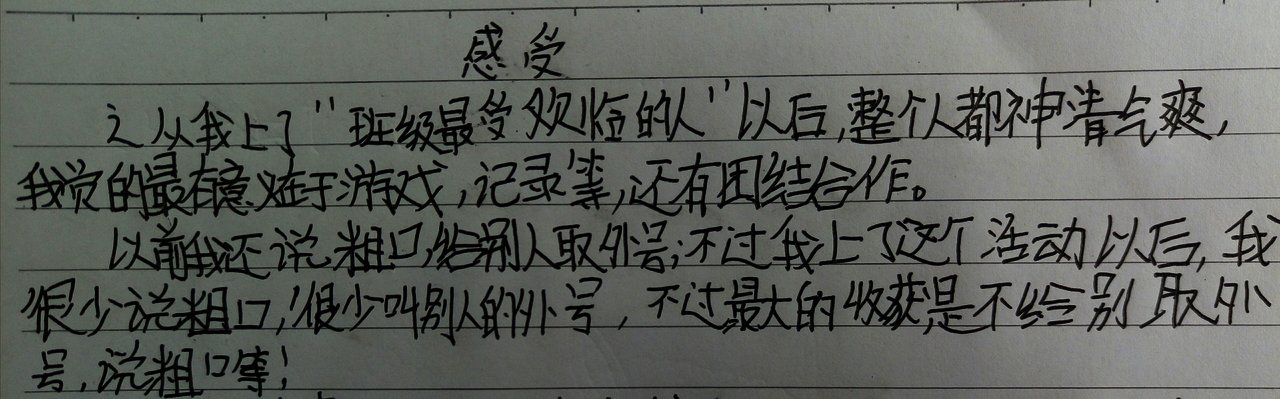 感受
之从我上了"班级最受欢临的人"以后,整个人都神清气爽,
我觉的最有意义在于游戏,记录等,还有团结合作。
以前我还说粗口,给别人取外号;不过我上了这个活动以后,我
很少说粗口,很少叫别人的外号,不过最大的收获是不给别取外
号,说粗口等!